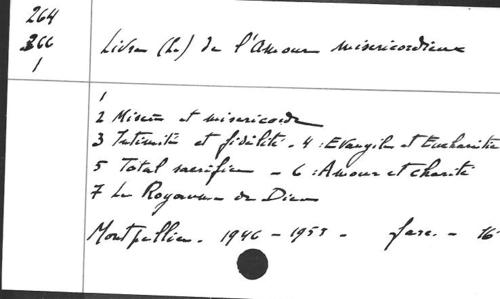 264
366
1
Livre (Le) de l'Amour misericordieux
1
2 Misère et misericorde
3 Intimité et fidélité - 4 : Evangile et Eucharistie
5 Total sacrifice - 6 : Amour et charité
7 Le Royaume de Dieu
Montpellier - 1946 - 1953 - fasc. - 16°